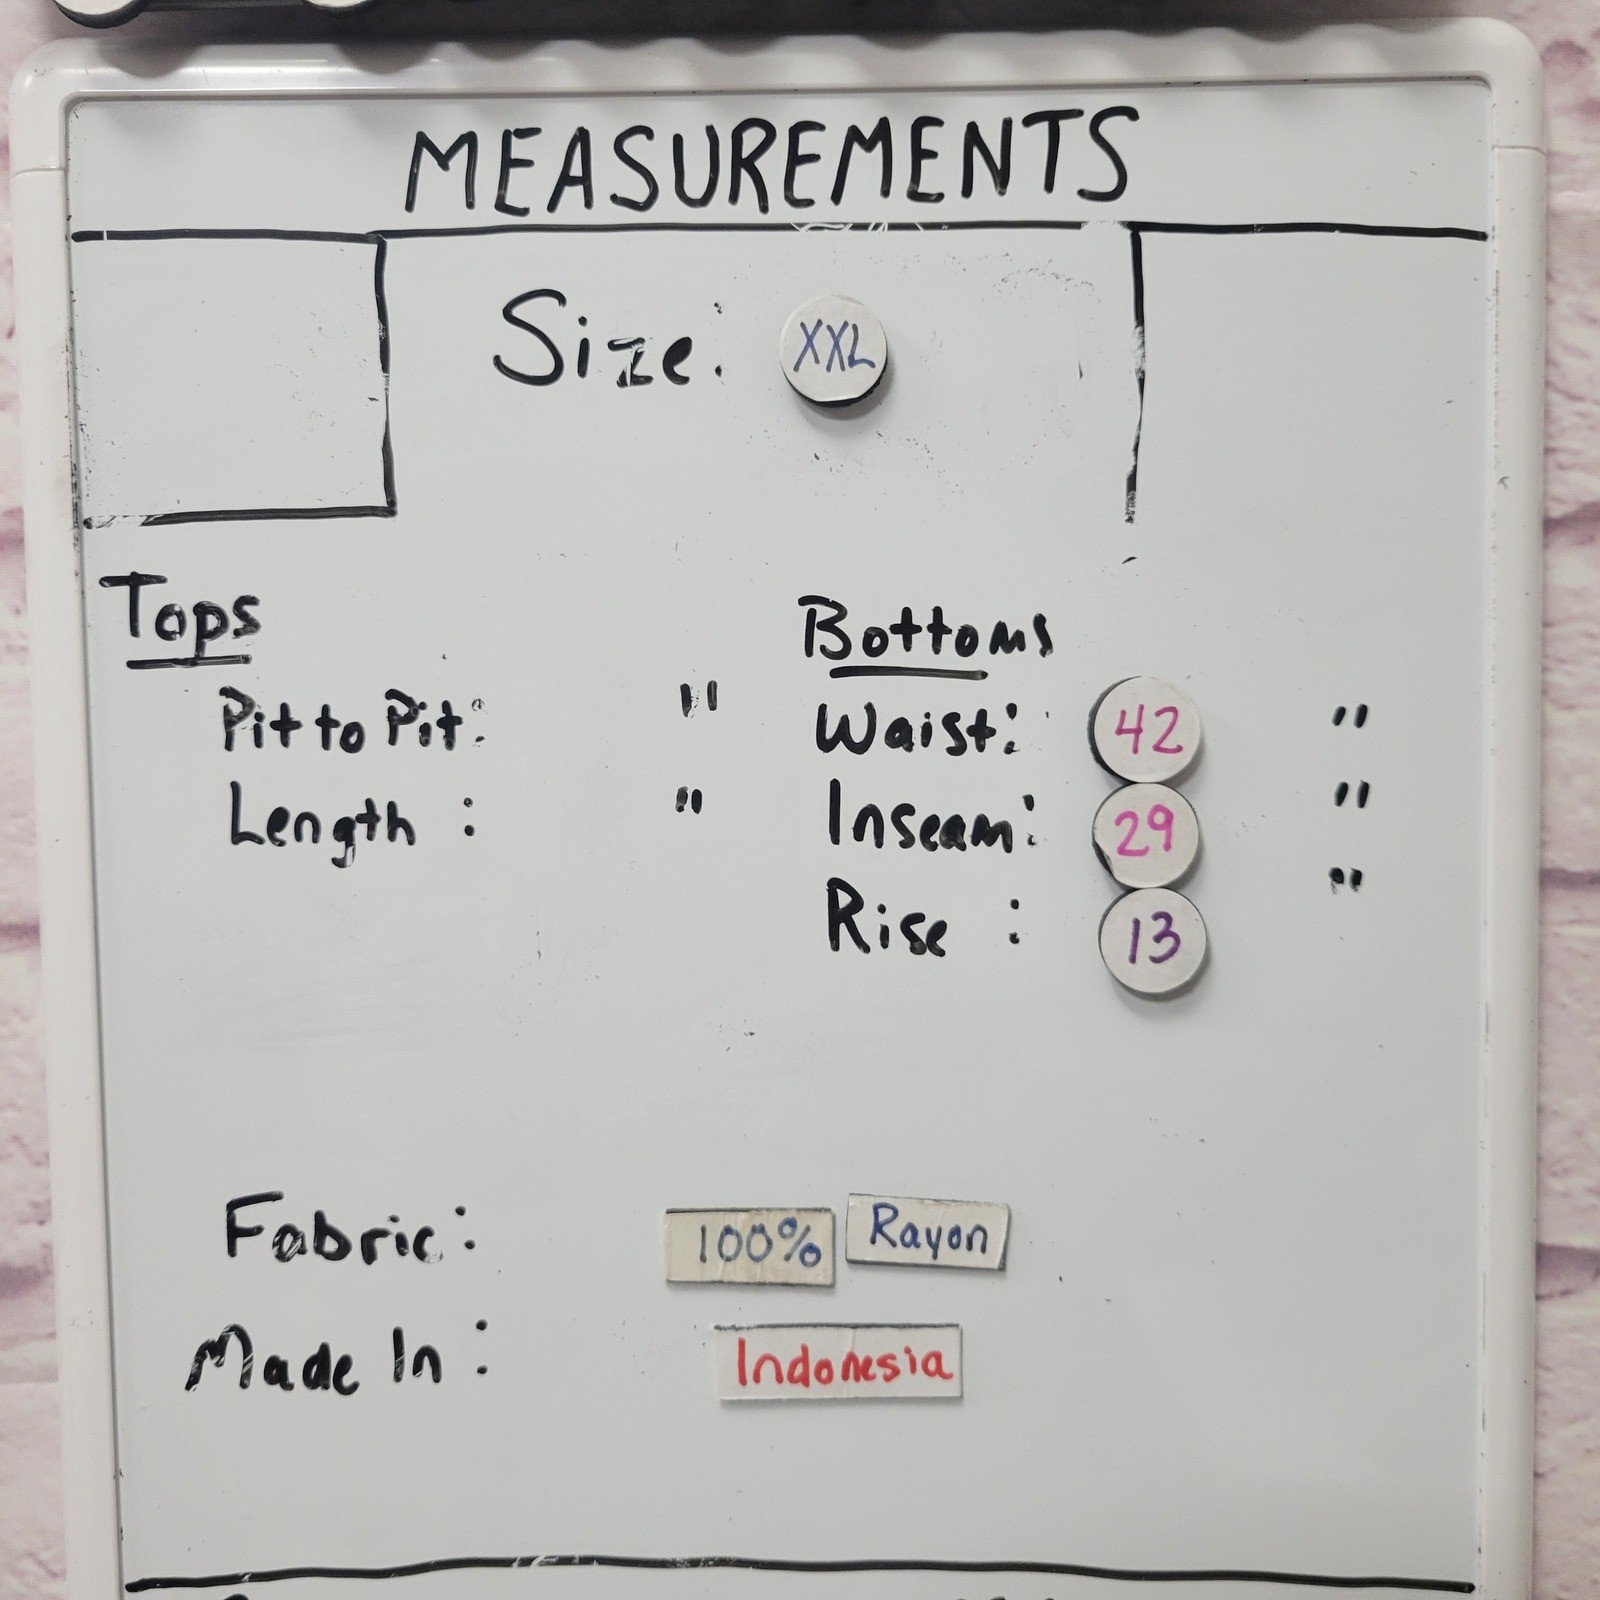 MEASUREMENTS
Size: XXL
Tops
Pit to Pit: "
Length : "
Bottoms
Waist: 42 "
Inseam: 29 "
Rise : 13 "
Fabric: 100% Rayon
Made In: Indonesia